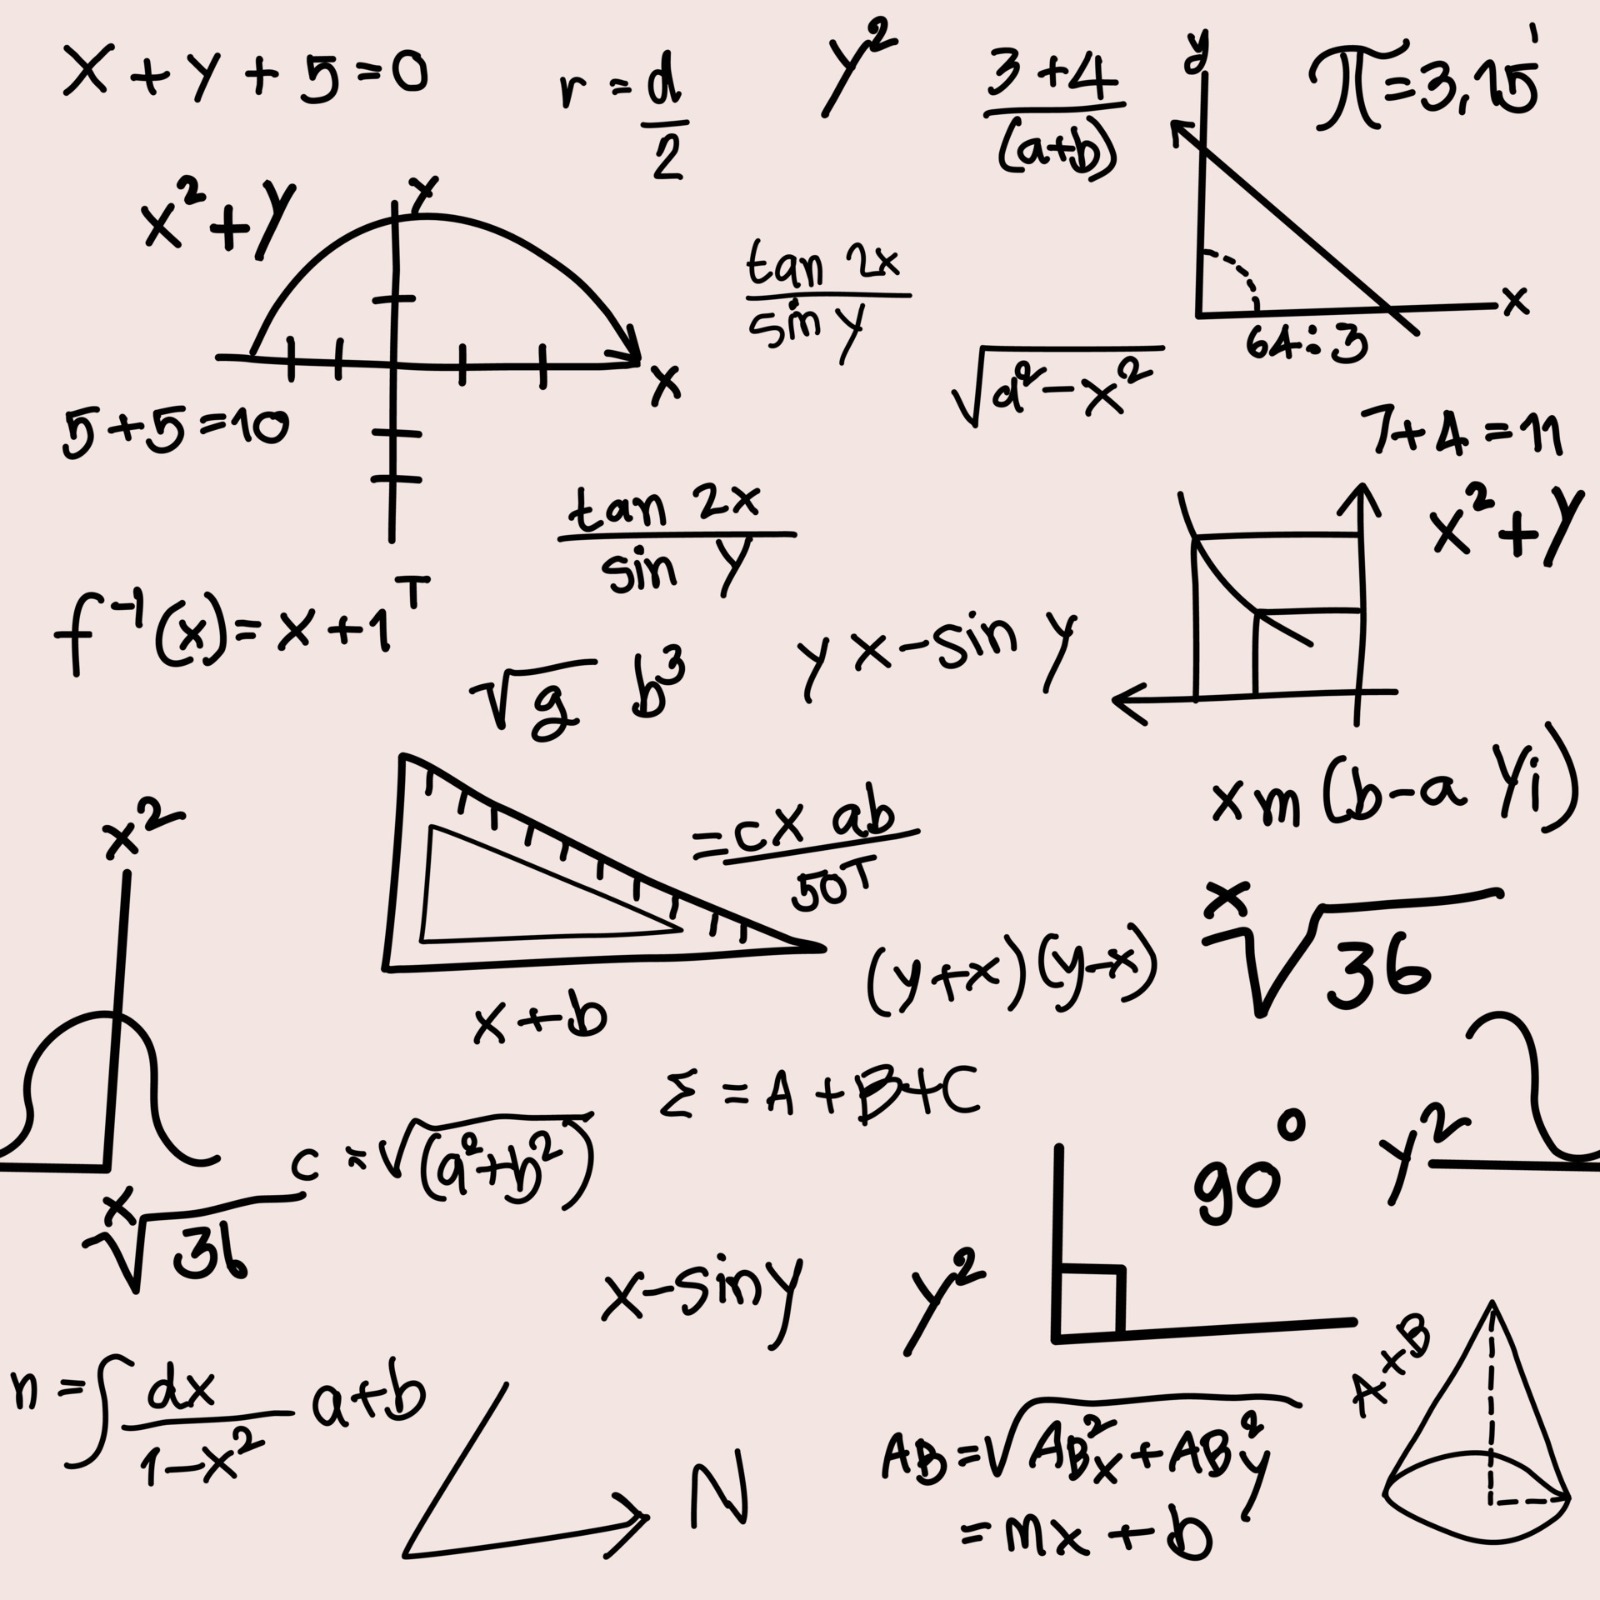 x + y + 5 = 0
r = d/2
y²
3 + 4
(a+b)
y
π = 3,15
x² + y
y
tan 2x
sin y
x
64÷3
x
√d² − x²
5 + 5 = 10
7 + 4 = 11
tan 2x
sin y
x² + y
f⁻¹(x) = x + 1ᵀ
√g b³
y x − sin y
xm (b − a Yi)
x²
= cx ab
50T
ˣ√36
(y+x)(y−x)
x + b
Σ = A + B + C
c ≈ √(a²+b²)
90°
y²
ˣ√36
x − sin y
y²
A+B
n = ∫ dx a+b
1−x²
AB = √AB²x + AB²y
N
= mx + b